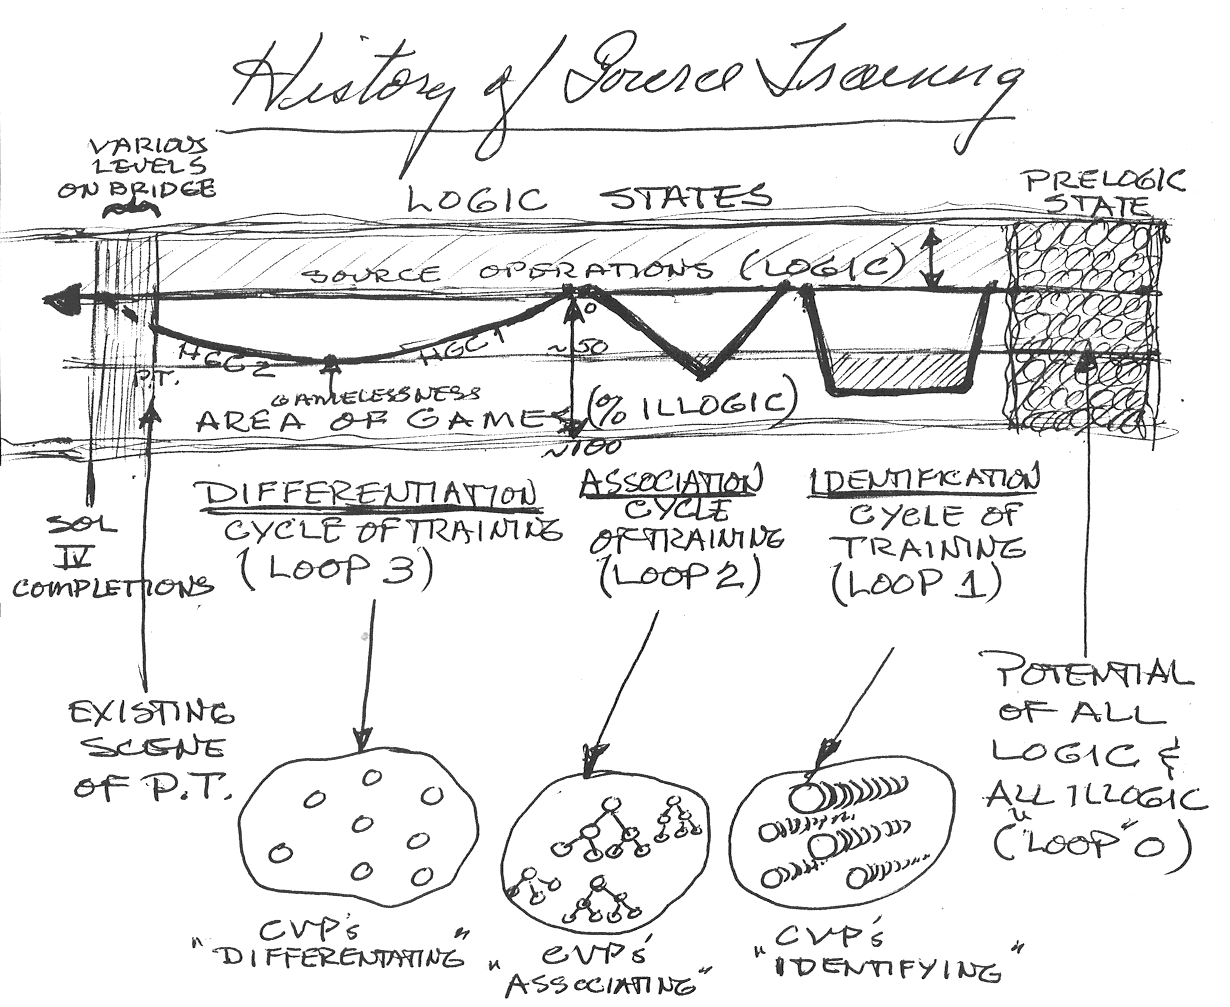 History of Source Training
VARIOUS
LEVELS
ON BRIDGE
LOGIC STATES
PRELOGIC
STATE
SOURCE OPERATIONS (LOGIC)
HGC 2
HGC 1
0
~50
P.T.
GAMELESSNESS
AREA OF GAMES (% ILLOGIC)
~100
SOL
IV
COMPLETIONS
DIFFERENTIATION
CYCLE OF TRAINING
(LOOP 3)
ASSOCIATION
CYCLE
OF TRAINING
(LOOP 2)
IDENTIFICATION
CYCLE OF
TRAINING
(LOOP 1)
EXISTING
SCENE
OF P.T.
POTENTIAL
OF ALL
LOGIC &
ALL ILLOGIC
("LOOP" 0)
CVP's
"DIFFERENTATING"
CVP's
"ASSOCIATING"
CVP's
"IDENTIFYING"